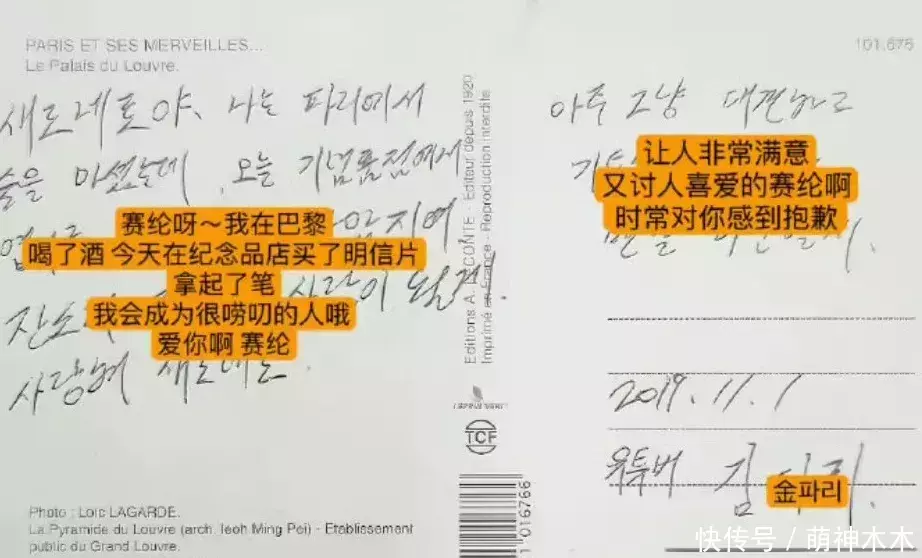 PARIS ET SES MERVEILLES...
Le Palais du Louvre.
101.676
새로레토야, 나는 파리에서
술을 마셨는데, 오늘 기념품점에서
赛纶呀～我在巴黎
喝了酒 今天在纪念品店买了明信片
拿起了笔
我会成为很唠叨的人哦
爱你啊 赛纶
사랑해
Editions A. LECONTE - Editeur depuis 1920
Imprimé en France - Reproduction interdite
TCF
016766
아주 그냥 대견하고
让人非常满意
又讨人喜爱的赛纶啊
时常对你感到抱歉
2019. 11. 1
유튜버 김
金파리
Photo : Loïc LAGARDE.
La Pyramide du Louvre (arch. Ieoh Ming Pei) - Etablissement
public du Grand Louvre.
快传号 / 萌神木木